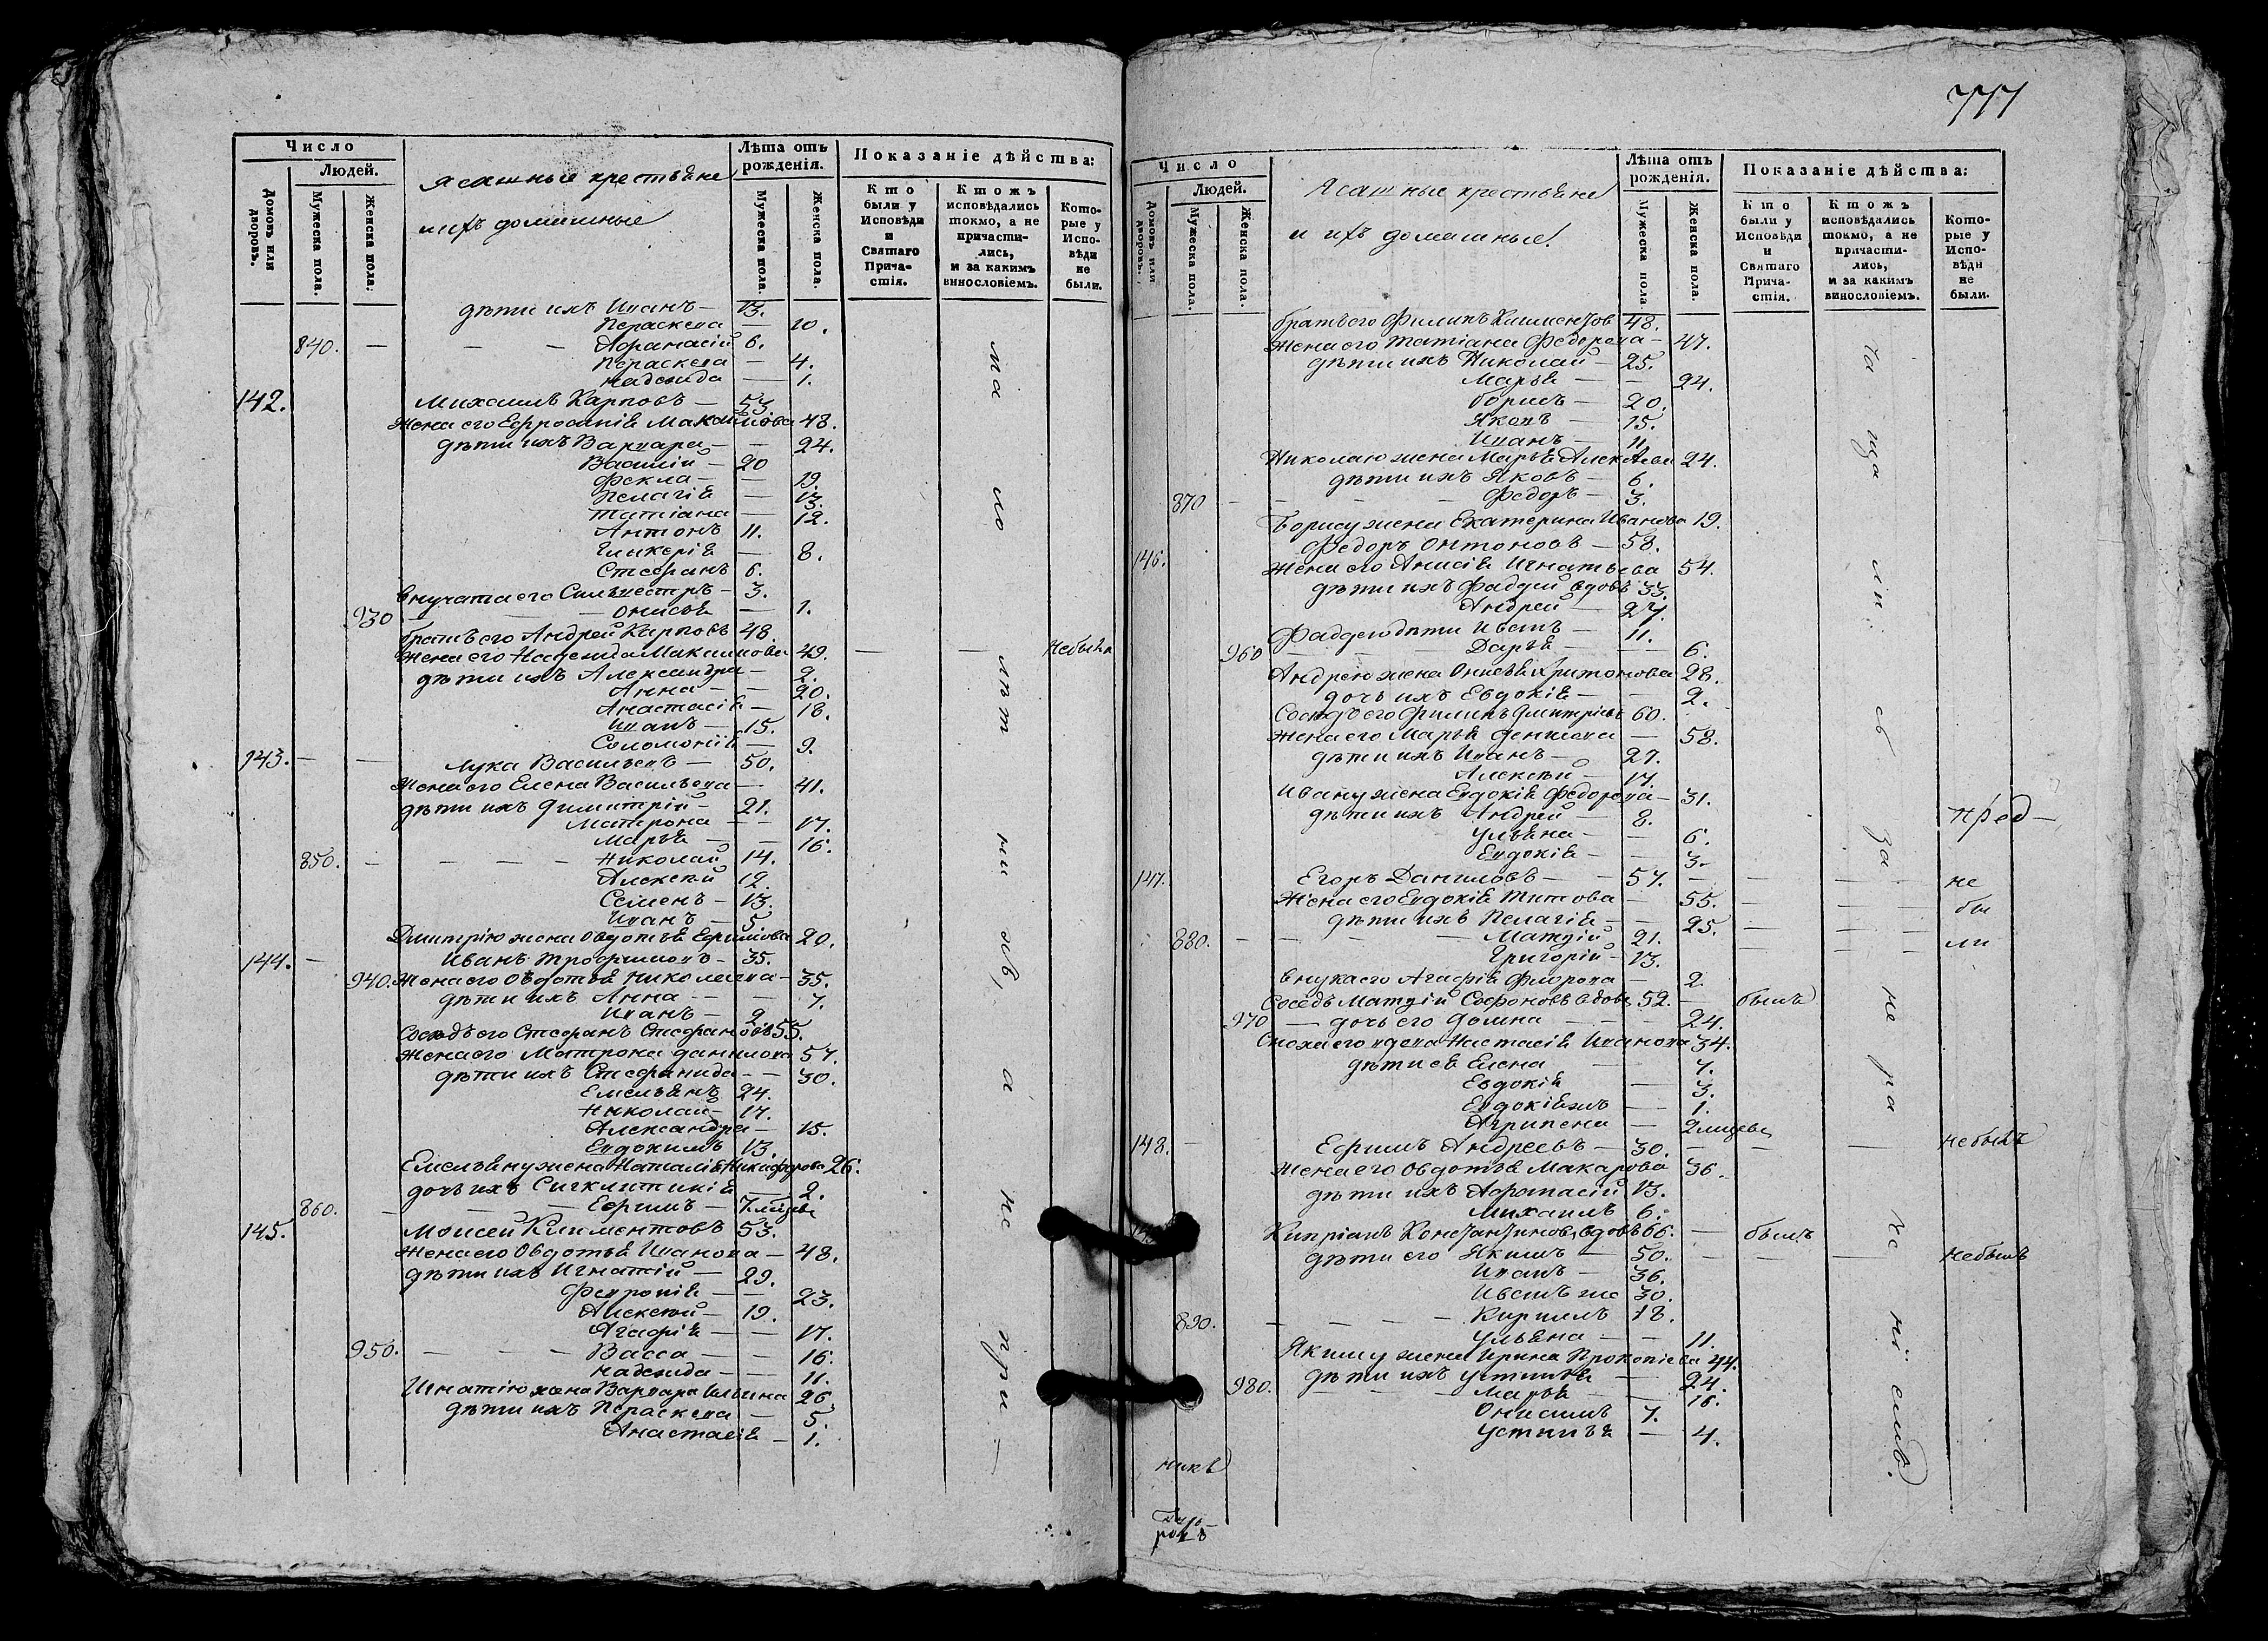 Число
Людей.
Домовъ или дворовъ.
Мужеска пола.
Женска пола.
Ясашныя крестьяне
и ихъ домашныя
Лѣта отъ рожденія.
Мужеска пола.
Женска пола.
Показаніе дѣйства:
Кто были у Исповѣди и Святаго Прича-стія.
Ктожъ исповѣдались токмо, а не причасти-лись, и за какимъ винословіемъ.
Кото-рые у Испо-вѣди не были.
дѣти ихъ Иванъ — 13.
Параскева — 10.
840. — — — Афанасій 6.
Параскева — 4.
Надежда — 1.
142. Михаилъ Карповъ — 53.
Жена его Ефросинія Максимова 48.
дѣти ихъ Варвара — — 24.
Василій — 20
Фекла — — 19.
Пелагія — 13.
Татіана — 12.
Антонъ 11.
Гликерія — 8.
Стефанъ 6.
внучата его Сильвестръ — 3.
930 — — Онисья — 1.
братъ его Андрей Карповъ 48.
Жена его Надежда Максимова 49. — — небыла
дѣти ихъ Александра — 2.
Анна — — 20.
Анастасія — 18.
Иванъ — 15.
Соломонія — 9.
143. — — Лука Васильевъ — 50.
Жена его Елена Васильева — 41.
дѣти ихъ Димитрій — 21.
Матрона — — 17.
Марья — — 16.
850. — — — — Николай 14.
Алексѣй 12.
Семенъ — 13.
Иванъ — 5
Дмитрію жена Овдотья Ефимова 20.
144. — Иванъ Трофимовъ — 35.
940. Жена его Овдотья Николаева — 35.
дѣти ихъ Анна — — — 7.
Иванъ — 2.
Сосѣдъ его Стефанъ Стефановъ 55.
Жена его Матрона Данилова 57.
дѣти ихъ Стефанида — — 30.
Емельянъ 24.
Николай — 17.
Александра — 15.
Евдокимъ 13.
Емельяну жена Наталія Никифорова 26.
дочь ихъ Сигклитикія — 2.
860. — — — — Ефимъ — 7 мѣсяц
145. Моисей Климентовъ 53.
Жена его Овдотья Иванова — 48.
дѣти ихъ Игнатій — 29.
Феуронія — — 23.
Алексѣй — 19.
Агафія — — 17.
950. — — — Васса — — 16.
Надежда — — 11.
Игнатію жена Варвара Ильина 26
дѣти ихъ Параскева — 5.
Анастасія — 1.
777
Число
Людей.
Домовъ или дворовъ.
Мужеска пола.
Женска пола.
Ясашныя крестьяне
и ихъ домашныя.
Лѣта отъ рожденія.
Мужеска пола
Женска пола.
Показаніе дѣйства:
Кто были у Исповѣди и Святаго Прича-стія.
Ктожъ исповѣдались токмо, а не причасти-лись, и за какимъ винословіемъ.
Кото-рые у Испо-вѣди не были.
братъ его Филипъ Климентов 48.
Жена его Татіана Федорова — 47.
дѣти ихъ Николай — 25.
Марья — — 24.
Борисъ — 20.
Яковъ — 15.
Иванъ — 11.
Николаю жена Марья Алексѣева 24.
дѣти ихъ Яковъ — 6.
870 — — — — Федоръ — 3.
Борису жена Екатерина Иванова 19.
146. Федоръ Онтоновъ — 58.
Жена его Анисія Игнатьева 54.
дѣти ихъ Фадѣй вдовъ 33.
Андрей — 27.
Фаддею дѣти Иванъ — 11.
960 — — — Дарья — — 6.
Андрею жена Онисья Харитонова 28.
дочь ихъ Евдокія — — 2.
Сосѣдъ его Филипъ Дмитріевъ 60.
Жена его Марья Денисова — 58.
дѣти ихъ Иванъ — 27.
Алексѣй — 17.
Ивану жена Евдокія Федорова — 31.
дѣти ихъ Андрей — 8.
Ульяна — — 6.
Евдокія — — 3.
147. Егоръ Даниловъ — — 57. — — — не
Жена его Евдокія Титова — 55. — — — бы
дѣти ихъ Пелагія — — 25. — — —
880. — — — — Матѳій 21. — — — ли
Григорій — 13.
внука его Агафія Флорова — 2.
Соседъ Матѳій Софоновъ вдовъ 52. — былъ
970 — дочь его Домна — — — 24.
Сноха его вдова Настасія Иванова 34.
дѣти ея Елена — 7.
Евдокія — 3.
Евдокія жъ — 1.
Агрипена — 2 мѣсяц
148. — Ефимъ Андреевъ — 30. — — — небылъ
Жена его Овдотья Макарова 36.
дѣти ихъ Афонасій 13.
Михаилъ 6.
Кипріанъ Константиновъ вдовъ 66. — былъ
дѣти его Якимъ — 50. — — — небылъ
Иванъ — 36.
Иванъ же 30.
890. — — — — Кирилъ 18.
Ульяна — — 11.
Якиму жена Ирина Прокопіева 44.
980. дѣти ихъ Устинья — 24.
— — — Марья — — 16.
Онисимъ 7.
Устинья — 4.